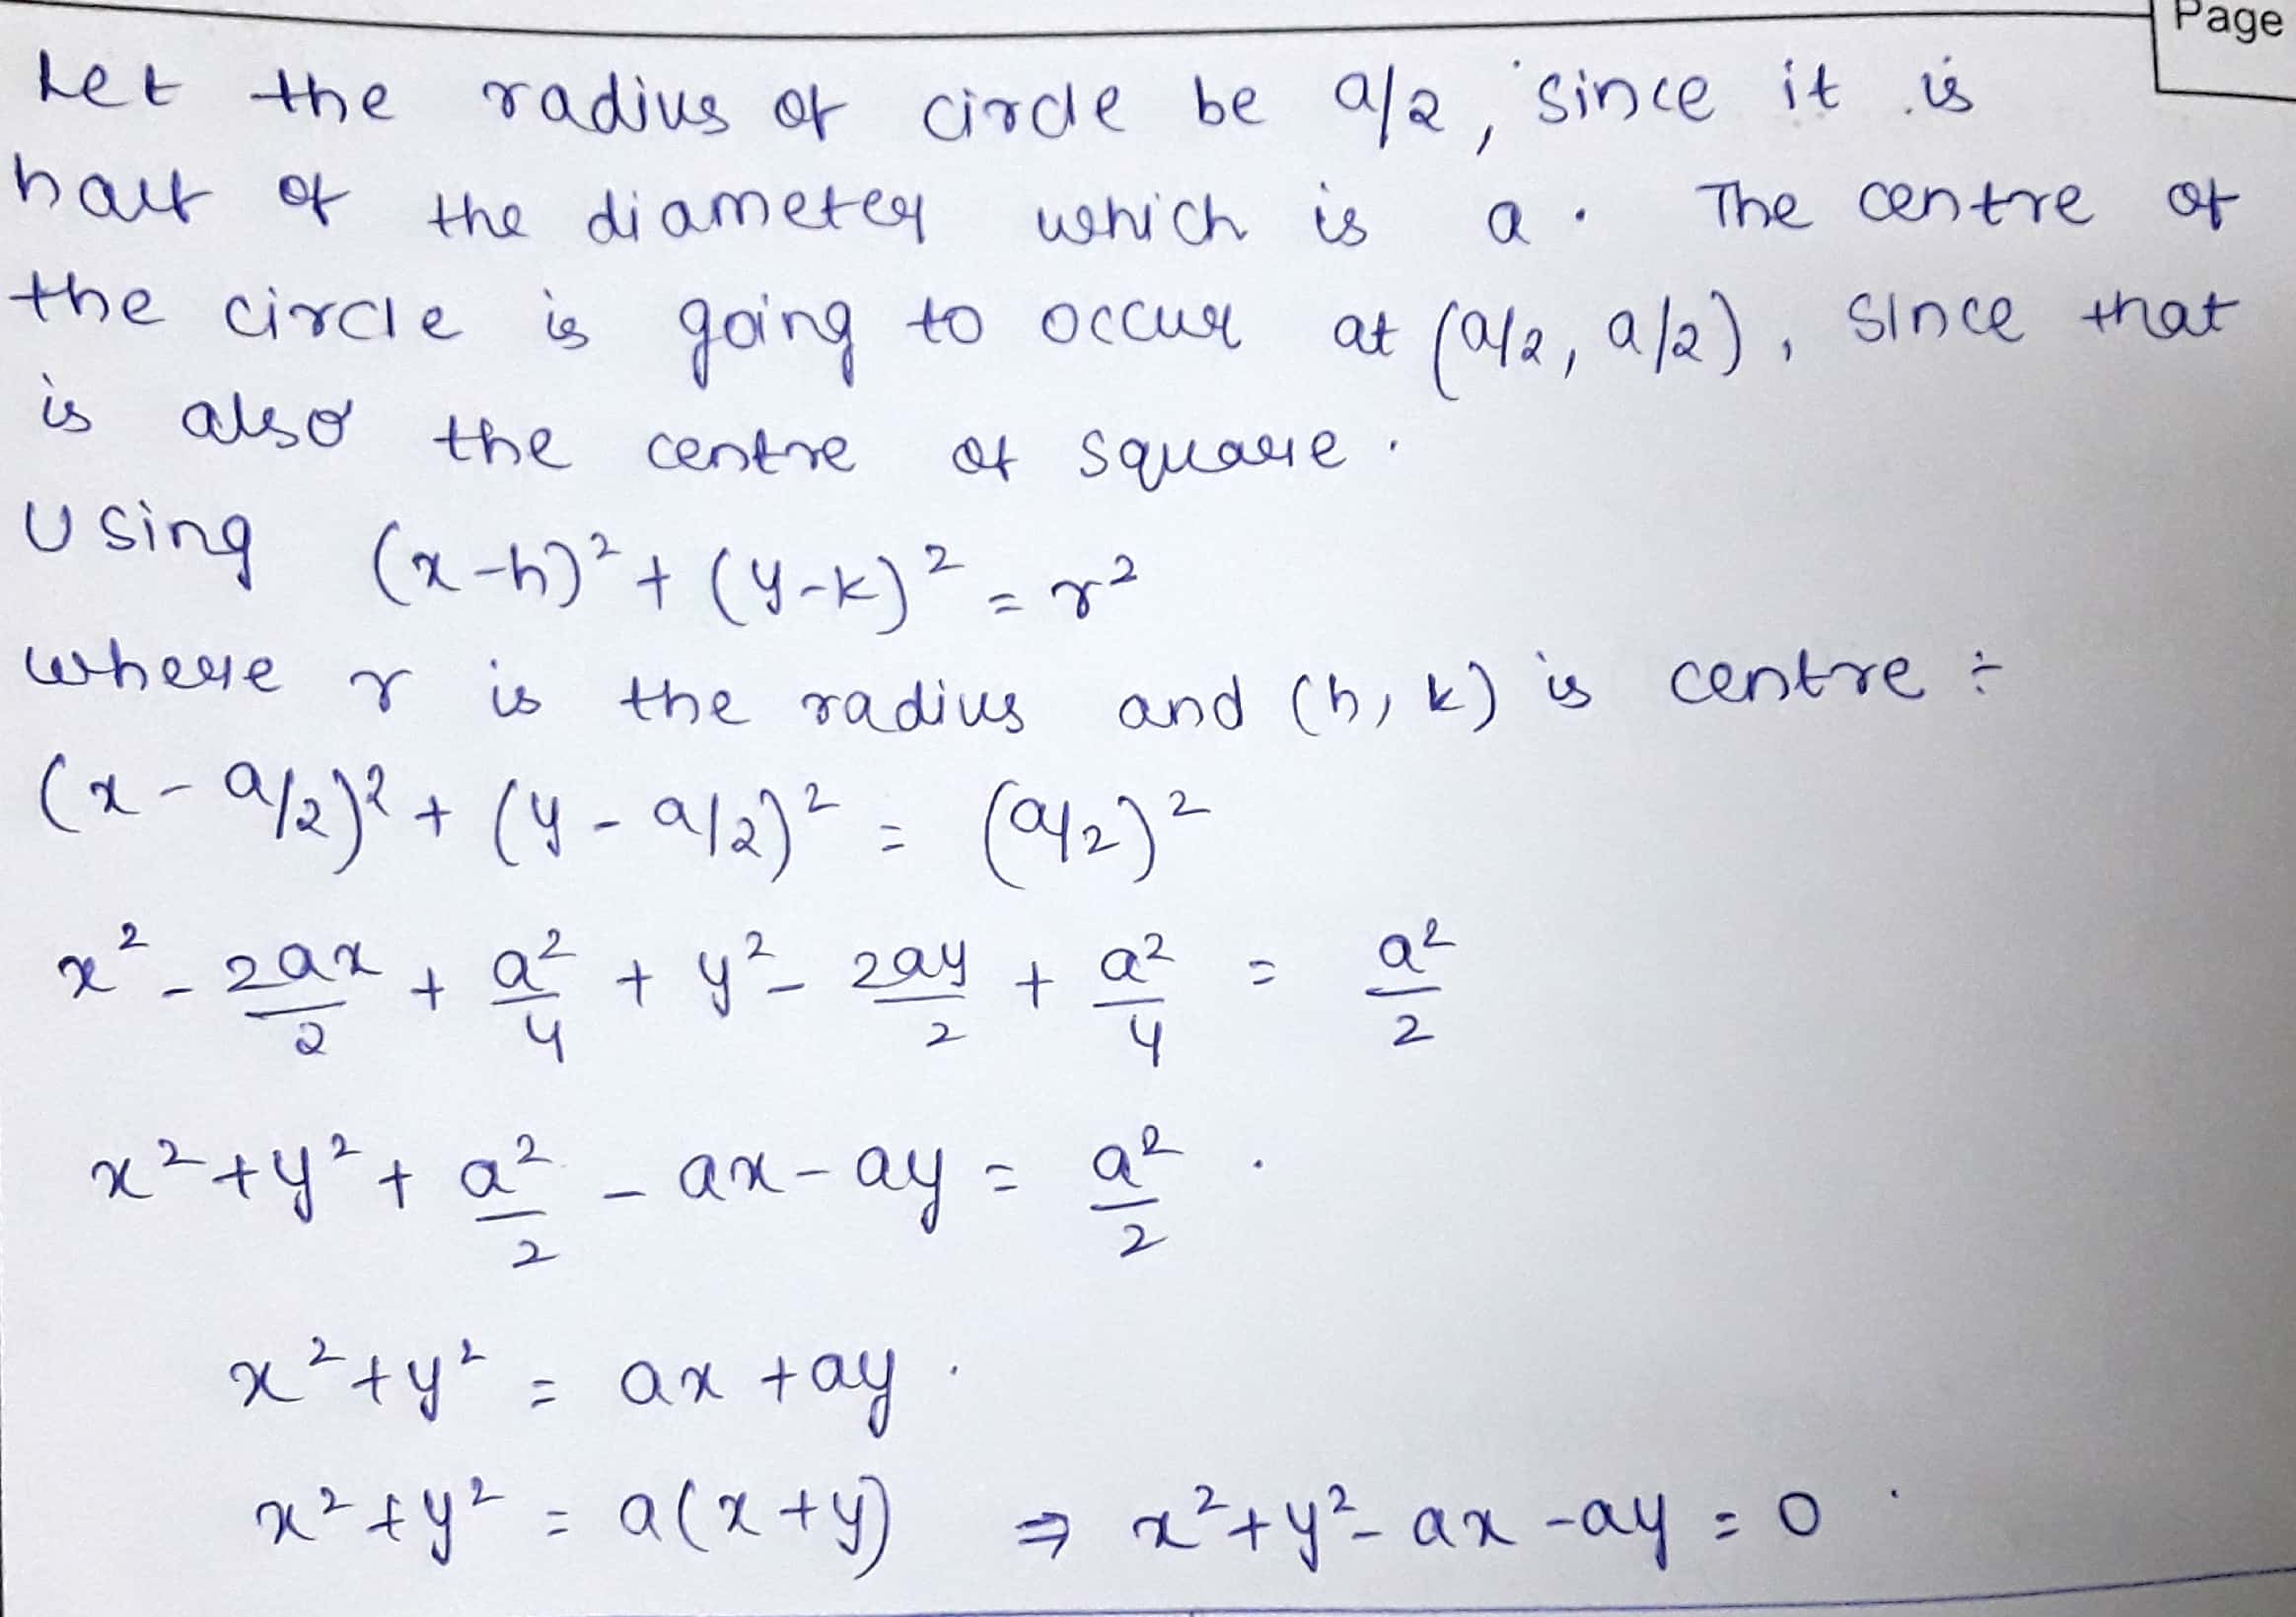 Page
Let the radius of circle be a/2, since it is
half of the diameter which is a. The centre of
the circle is going to occur at (a/2, a/2), since that
is also the centre of square.
Using (x-h)² + (y-k)² = r²
where r is the radius and (h, k) is centre :
(x - a/2)² + (y - a/2)² = (a/2)²
x² - 2ax/2 + a²/4 + y² - 2ay/2 + a²/4 = a²/2
x² + y² + a²/2 - ax - ay = a²/2 .
x² + y² = ax + ay .
x² + y² = a(x + y) ⇒ x² + y² - ax - ay = 0 .